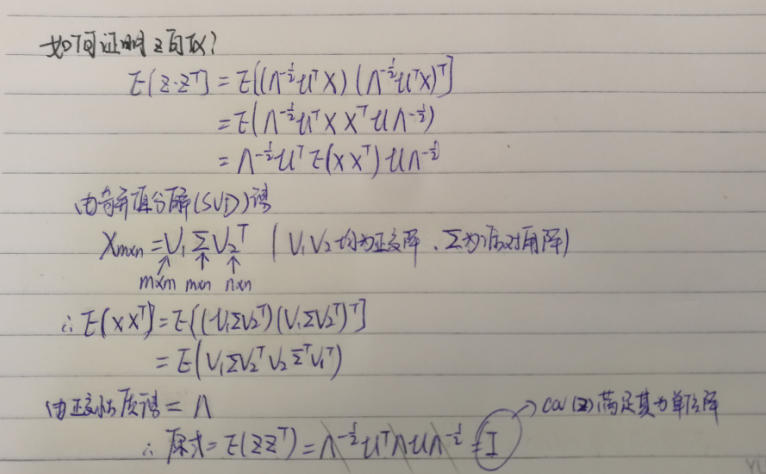 如何证明z可取?
E(z·zᵀ) = E[(Λ^{-1/2}UᵀX)(Λ^{-1/2}UᵀX)ᵀ]
= E(Λ^{-1/2}UᵀXXᵀUΛ^{-1/2})
= Λ^{-1/2}UᵀE(XXᵀ)UΛ^{-1/2}
由奇异值分解(SVD)得
Xm×n = V₁ΣV₂ᵀ (V₁V₂均为正交阵、Σ为对角阵)
m×m m×n n×n
∴ E(XXᵀ) = E[(V₁ΣV₂ᵀ)(V₁ΣV₂ᵀ)ᵀ]
= E(V₁ΣV₂ᵀV₂ΣᵀV₁ᵀ)
由正交性质得 = Λ
∴ 原式 = E(ZZᵀ) = Λ^{-1/2}UᵀΛUΛ^{-1/2} = I → cov(z)满足其为单位阵